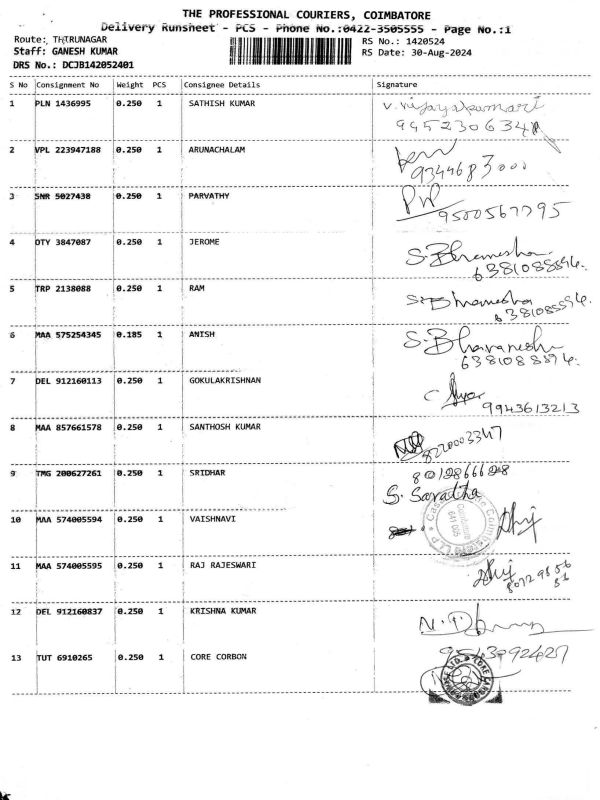 THE PROFESSIONAL COURIERS, COIMBATORE
Delivery Runsheet - PCS - Phone No.:0422-3505555 - Page No.:1
Route: THIRUNAGAR
RS No.: 1420524
Staff: GANESH KUMAR
RS Date: 30-Aug-2024
DRS No.: DCJB142052401
S No Consignment No Weight PCS Consignee Details Signature
1 PLN 1436995 0.250 1 SATHISH KUMAR
V. Vijayakumari
2 VPL 223947188 0.250 1 ARUNACHALAM
9344683000
3 SNR 5027438 0.250 1 PARVATHY
9500567795
4 OTY 3847087 0.250 1 JEROME
S. Bhavanesha
6381088594.
5 TRP 2138088 0.250 1 RAM
6381088594.
6 MAA 575254345 0.185 1 ANISH
S. Bhavanesh
6381088594.
7 DEL 912160113 0.250 1 GOKULAKRISHNAN
9943613213
8 MAA 857661578 0.250 1 SANTHOSH KUMAR
8220003347
9 TMG 200627261 0.250 1 SRIDHAR
8012866628
S. Saratha
10 MAA 574005594 0.250 1 VAISHNAVI
Coimbatore
641 005
11 MAA 574005595 0.250 1 RAJ RAJESWARI
12 DEL 912160837 0.250 1 KRISHNA KUMAR
13 TUT 6910265 0.250 1 CORE CORBON